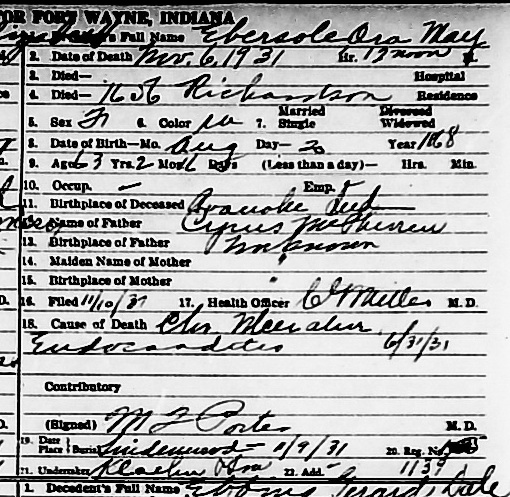 FOR FORT WAYNE, INDIANA
's Full Name Ebersole Ora May
2. Date of Death Nov. 6, 1931 Hr. 12 noon M.
3. Died— Hospital
4. Died— 1636 Richardson Residence
5. Sex F 6. Color W 7. Married Single Divorced Widowed
8. Date of Birth—Mo. Aug Day— 20 Year 1868
9. Age 63 Yrs. 2 Mos. 16 Days (Less than a day)— Hrs. Min.
10. Occup. — Emp.
11. Birthplace of Deceased Roanoke Ind
Name of Father Cyrus
13. Birthplace of Father Unknown
14. Maiden Name of Mother "
15. Birthplace of Mother "
16. Filed 11/10/31 17. Health Officer Miller M. D.
18. Cause of Death Chr
Endocarditis 6/31/31
Contributory
(Signed) M F Porter M. D.
19. Date Place Burial Lindenwood — 11/9/31 20. Reg. No.
21. Undertaker Klaehn & Son 22. Add. 1139
1. Decedent's Full Name Gerard Dale